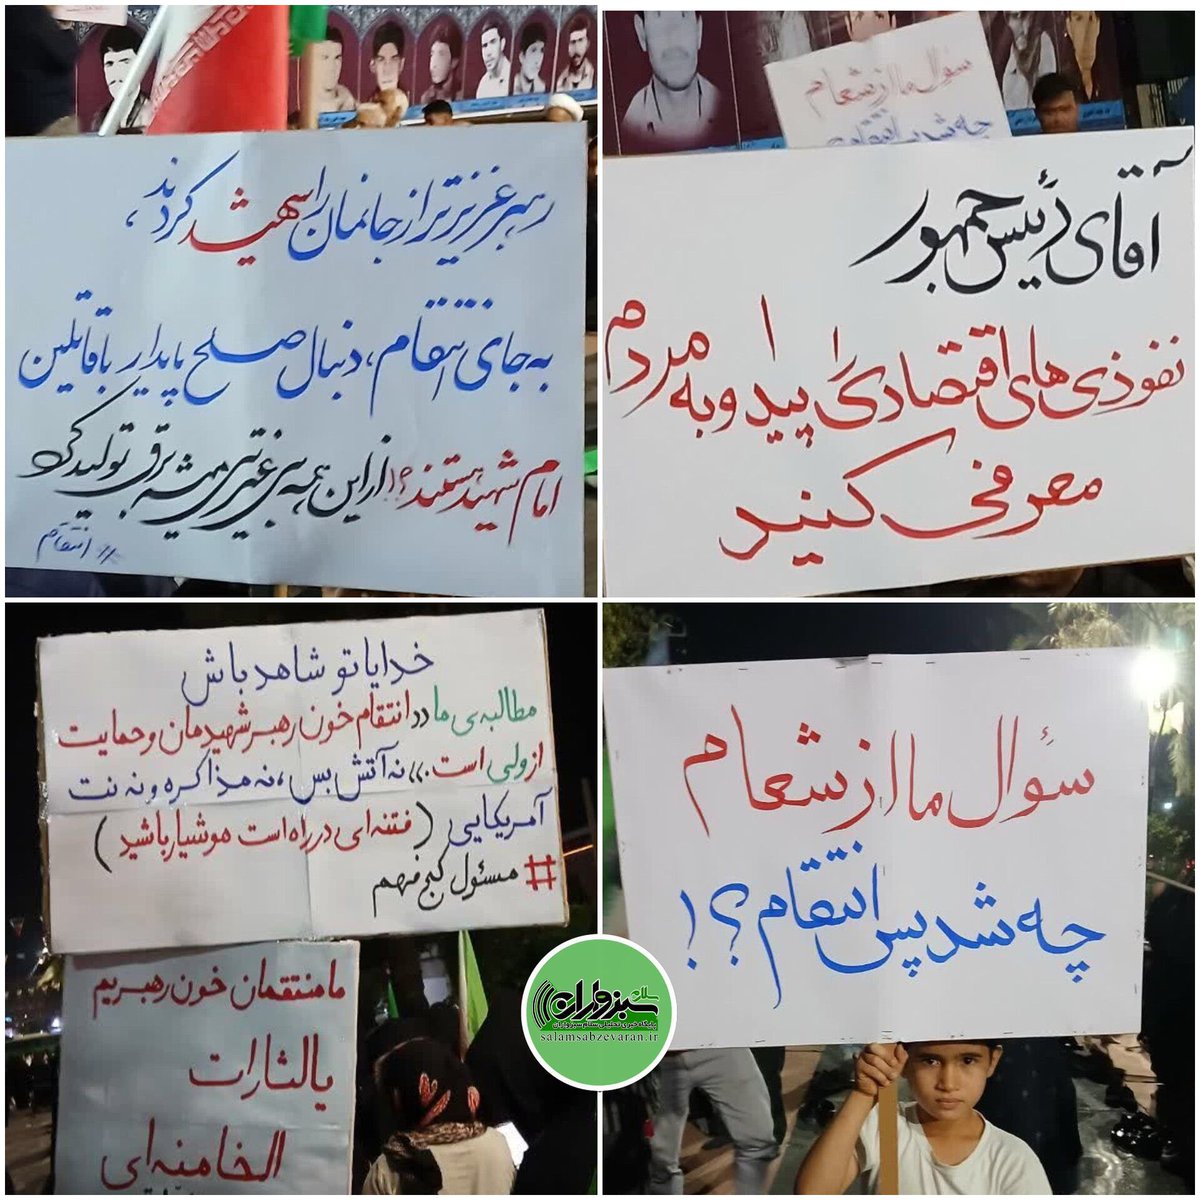 رهبر عزیزتر از جانمان را شهید کردند،
به جای انتقام، دنبال صلح پایدار با قاتلین
امام شهید هستند؟! از این همه بی غیرتی میشه برق تولید کرد
# انتقام
سؤال ما از شعام
چه شد پس انتقام
آقای رئیس جمهور
نفوذی های اقتصادی را پیدا و به مردم
معرفی کنید
خدایا تو شاهد باش
مطالبه ی ما «انتقام خون رهبر شهیدمان و حمایت
از ولی است.» نه آتش بس، نه مذاکره و نه نت
آمریکایی (فتنه ای در راه است هوشیار باشید)
# مسئول کج فهم
ما منتقمان خون رهبریم
یالثارات
الخامنه ای
سؤال ما از شعام
چه شد پس انتقام؟!
سلام سبزواران
پایگاه خبری تحلیلی سلام سبزواران
salamsabzevaran.ir